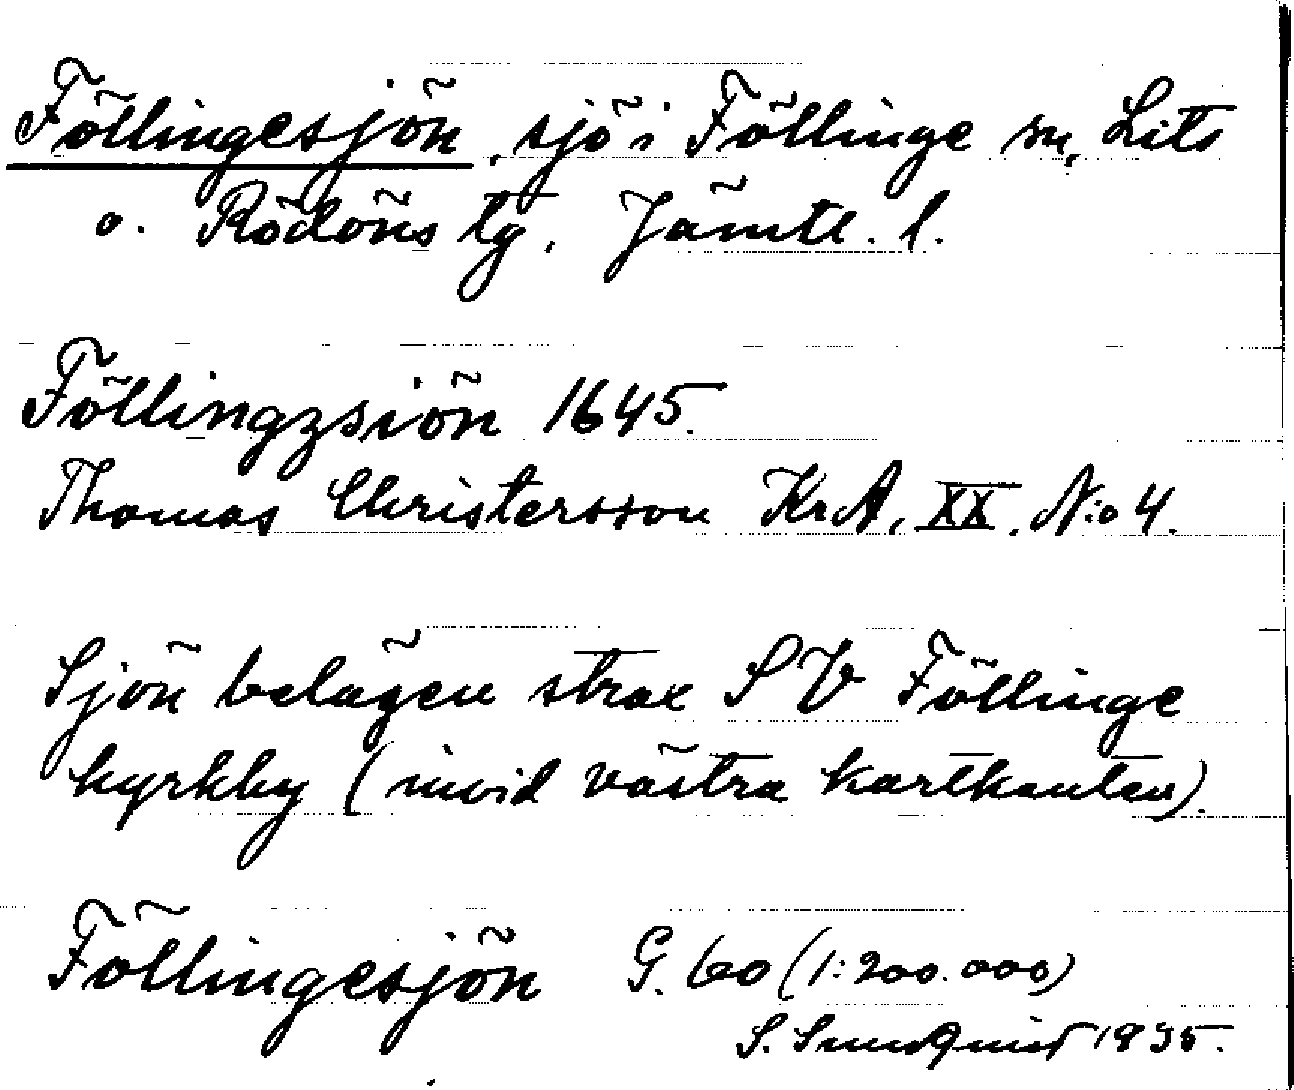 Föllingesjön, sjö i Föllinge sn, Lits
o. Rödöns tg, Jämtl. l.
Föllingzsiön 1645.
Thomas Christersson KrA, XX, N:o 4.
Sjön belägen strax S V Föllinge
kyrkby (invid västra kartkanten).
Föllingesjön G. 60 (1:200.000)
S. Sundquist 1935.